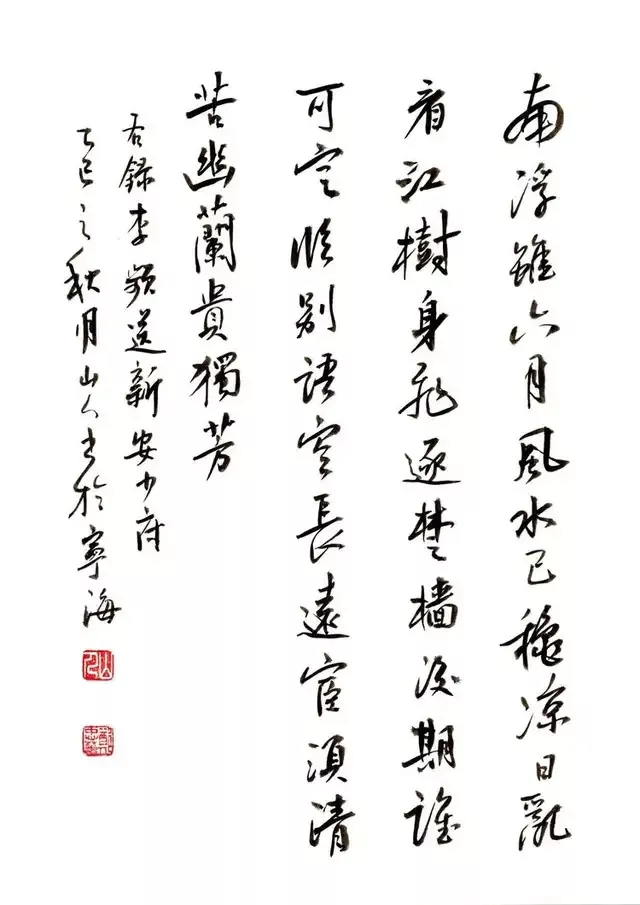 南浮雖六月風水已穐凉日亂
看江樹身飛逐楚檣後期誰
可定臨别語空長遠宦須清
苦幽蘭貴獨芳
右録李頻送新安少府
乙巳之秋月山人書於寧海
山人